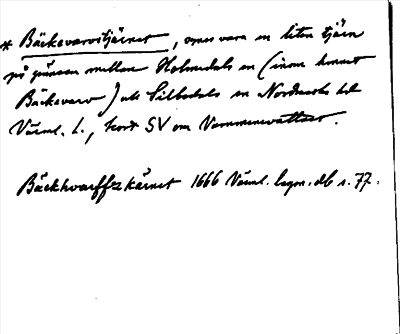 * Bäckevarvstjärnet, synes vara en liten tjärn
på gränsen mellan Holmedals sn (inom hemmet
Bäckevarv) och Silbodals sn Nordmarks hd
Värml. l., kort SV om
Bäckhvarffzkärnet 1666 Värml. lsgm. db s. 77.